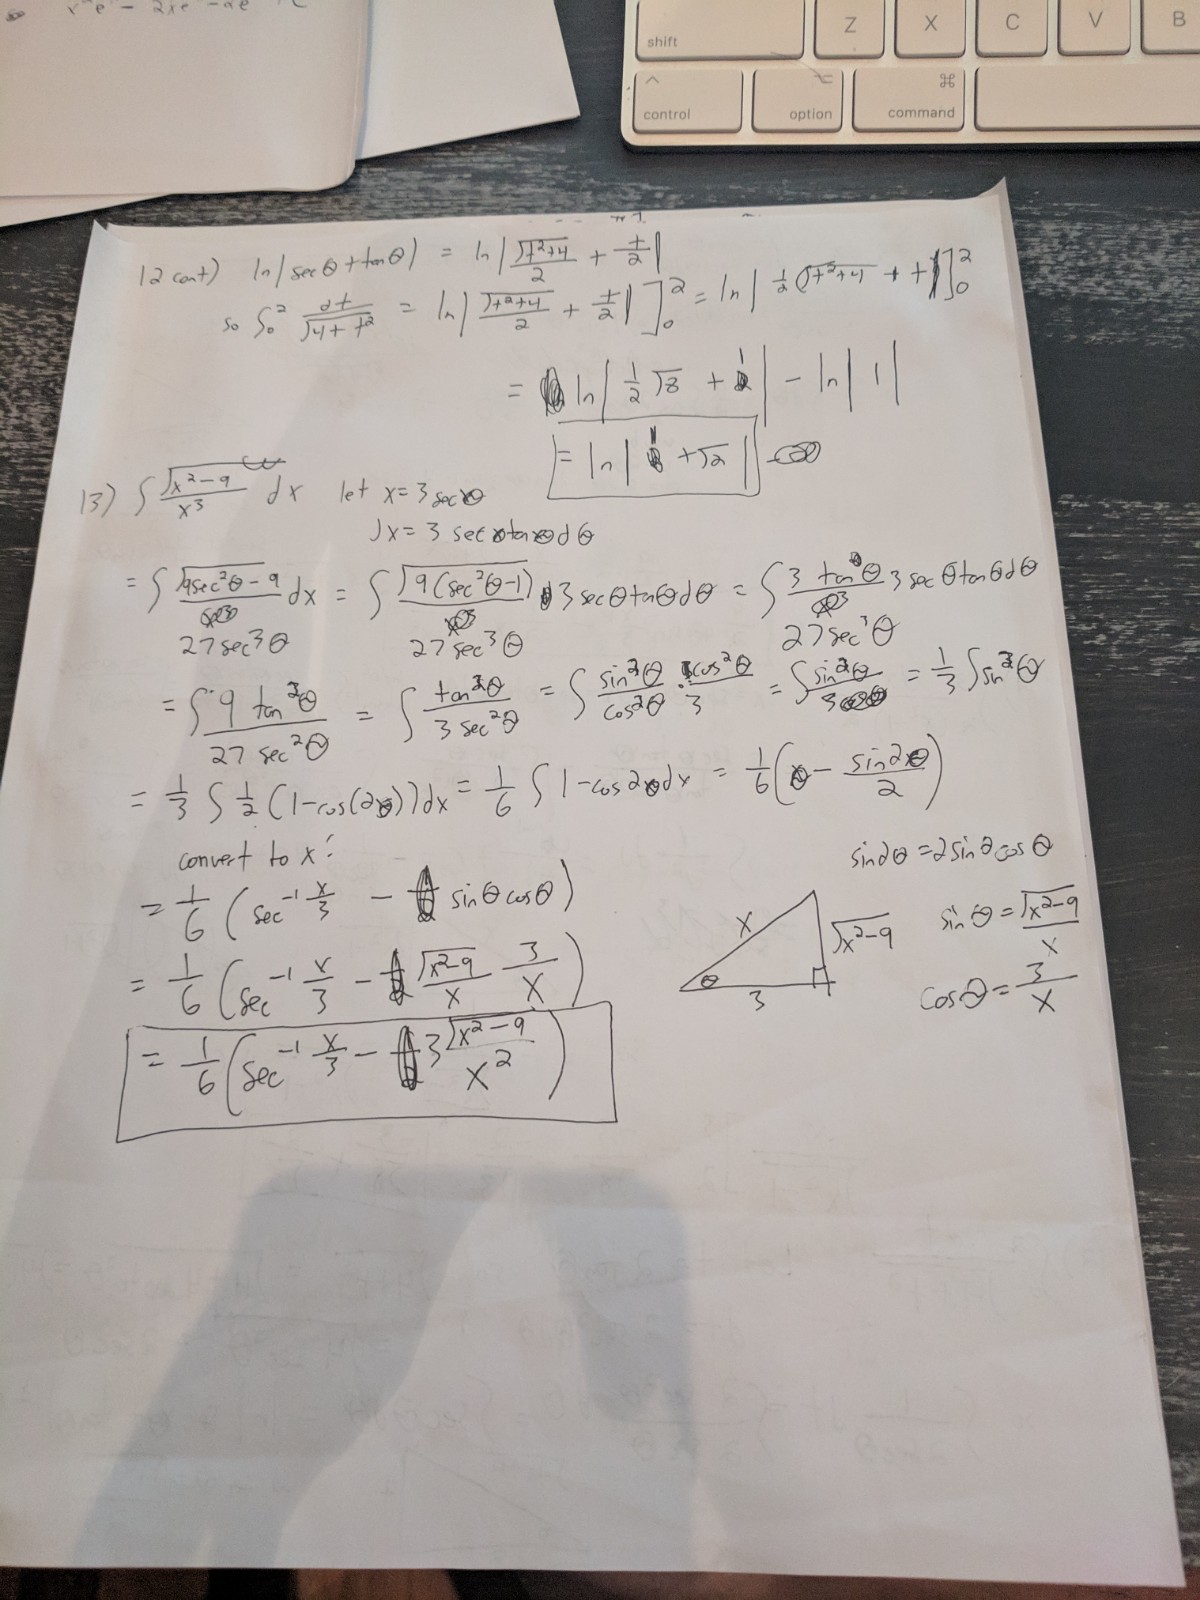 x²e - 2xe - 2e + C
shift Z X C V B
^ ⌥ ⌘
control option command
12 cont) ln|secθ + tanθ| = ln|√(t²+4)/2 + t/2|
so ∫₀² dt/√(4+t²) = ln|√(t²+4)/2 + t/2|]₀² = ln|½(√(t²+4) + t|]₀²
= ln|½√8 + 1| - ln|1|
= ln|1 + √2|
13) ∫ √(x²-9)/x³ dx let x = 3 secθ
dx = 3 secθ tanθ dθ
= ∫ √(9sec²θ-9)/27sec³θ dx = ∫ √(9(sec²θ-1))/27sec³θ 3 secθ tanθ dθ = ∫ 3 tanθ/27sec³θ 3 secθ tanθ dθ
= ∫ 9 tan²θ/27 sec²θ = ∫ tan²θ/3 sec²θ = ∫ sin²θ/cos²θ · cos²θ/3 = ∫ sin²θ/3 = 1/3 ∫ sin²θ
= 1/3 ∫ ½(1-cos(2θ))dx = 1/6 ∫ 1-cos2θ dx = 1/6(θ - sin2θ/2)
convert to x:
sin2θ = 2sinθ cosθ
= 1/6 (sec⁻¹ x/3 - sinθ cosθ)
x √(x²-9) sinθ = √(x²-9)/x
= 1/6 (sec⁻¹ x/3 - √(x²-9)/x 3/x)
θ 3 cosθ = 3/x
= 1/6 (sec⁻¹ x/3 - 3 √(x²-9)/x²)